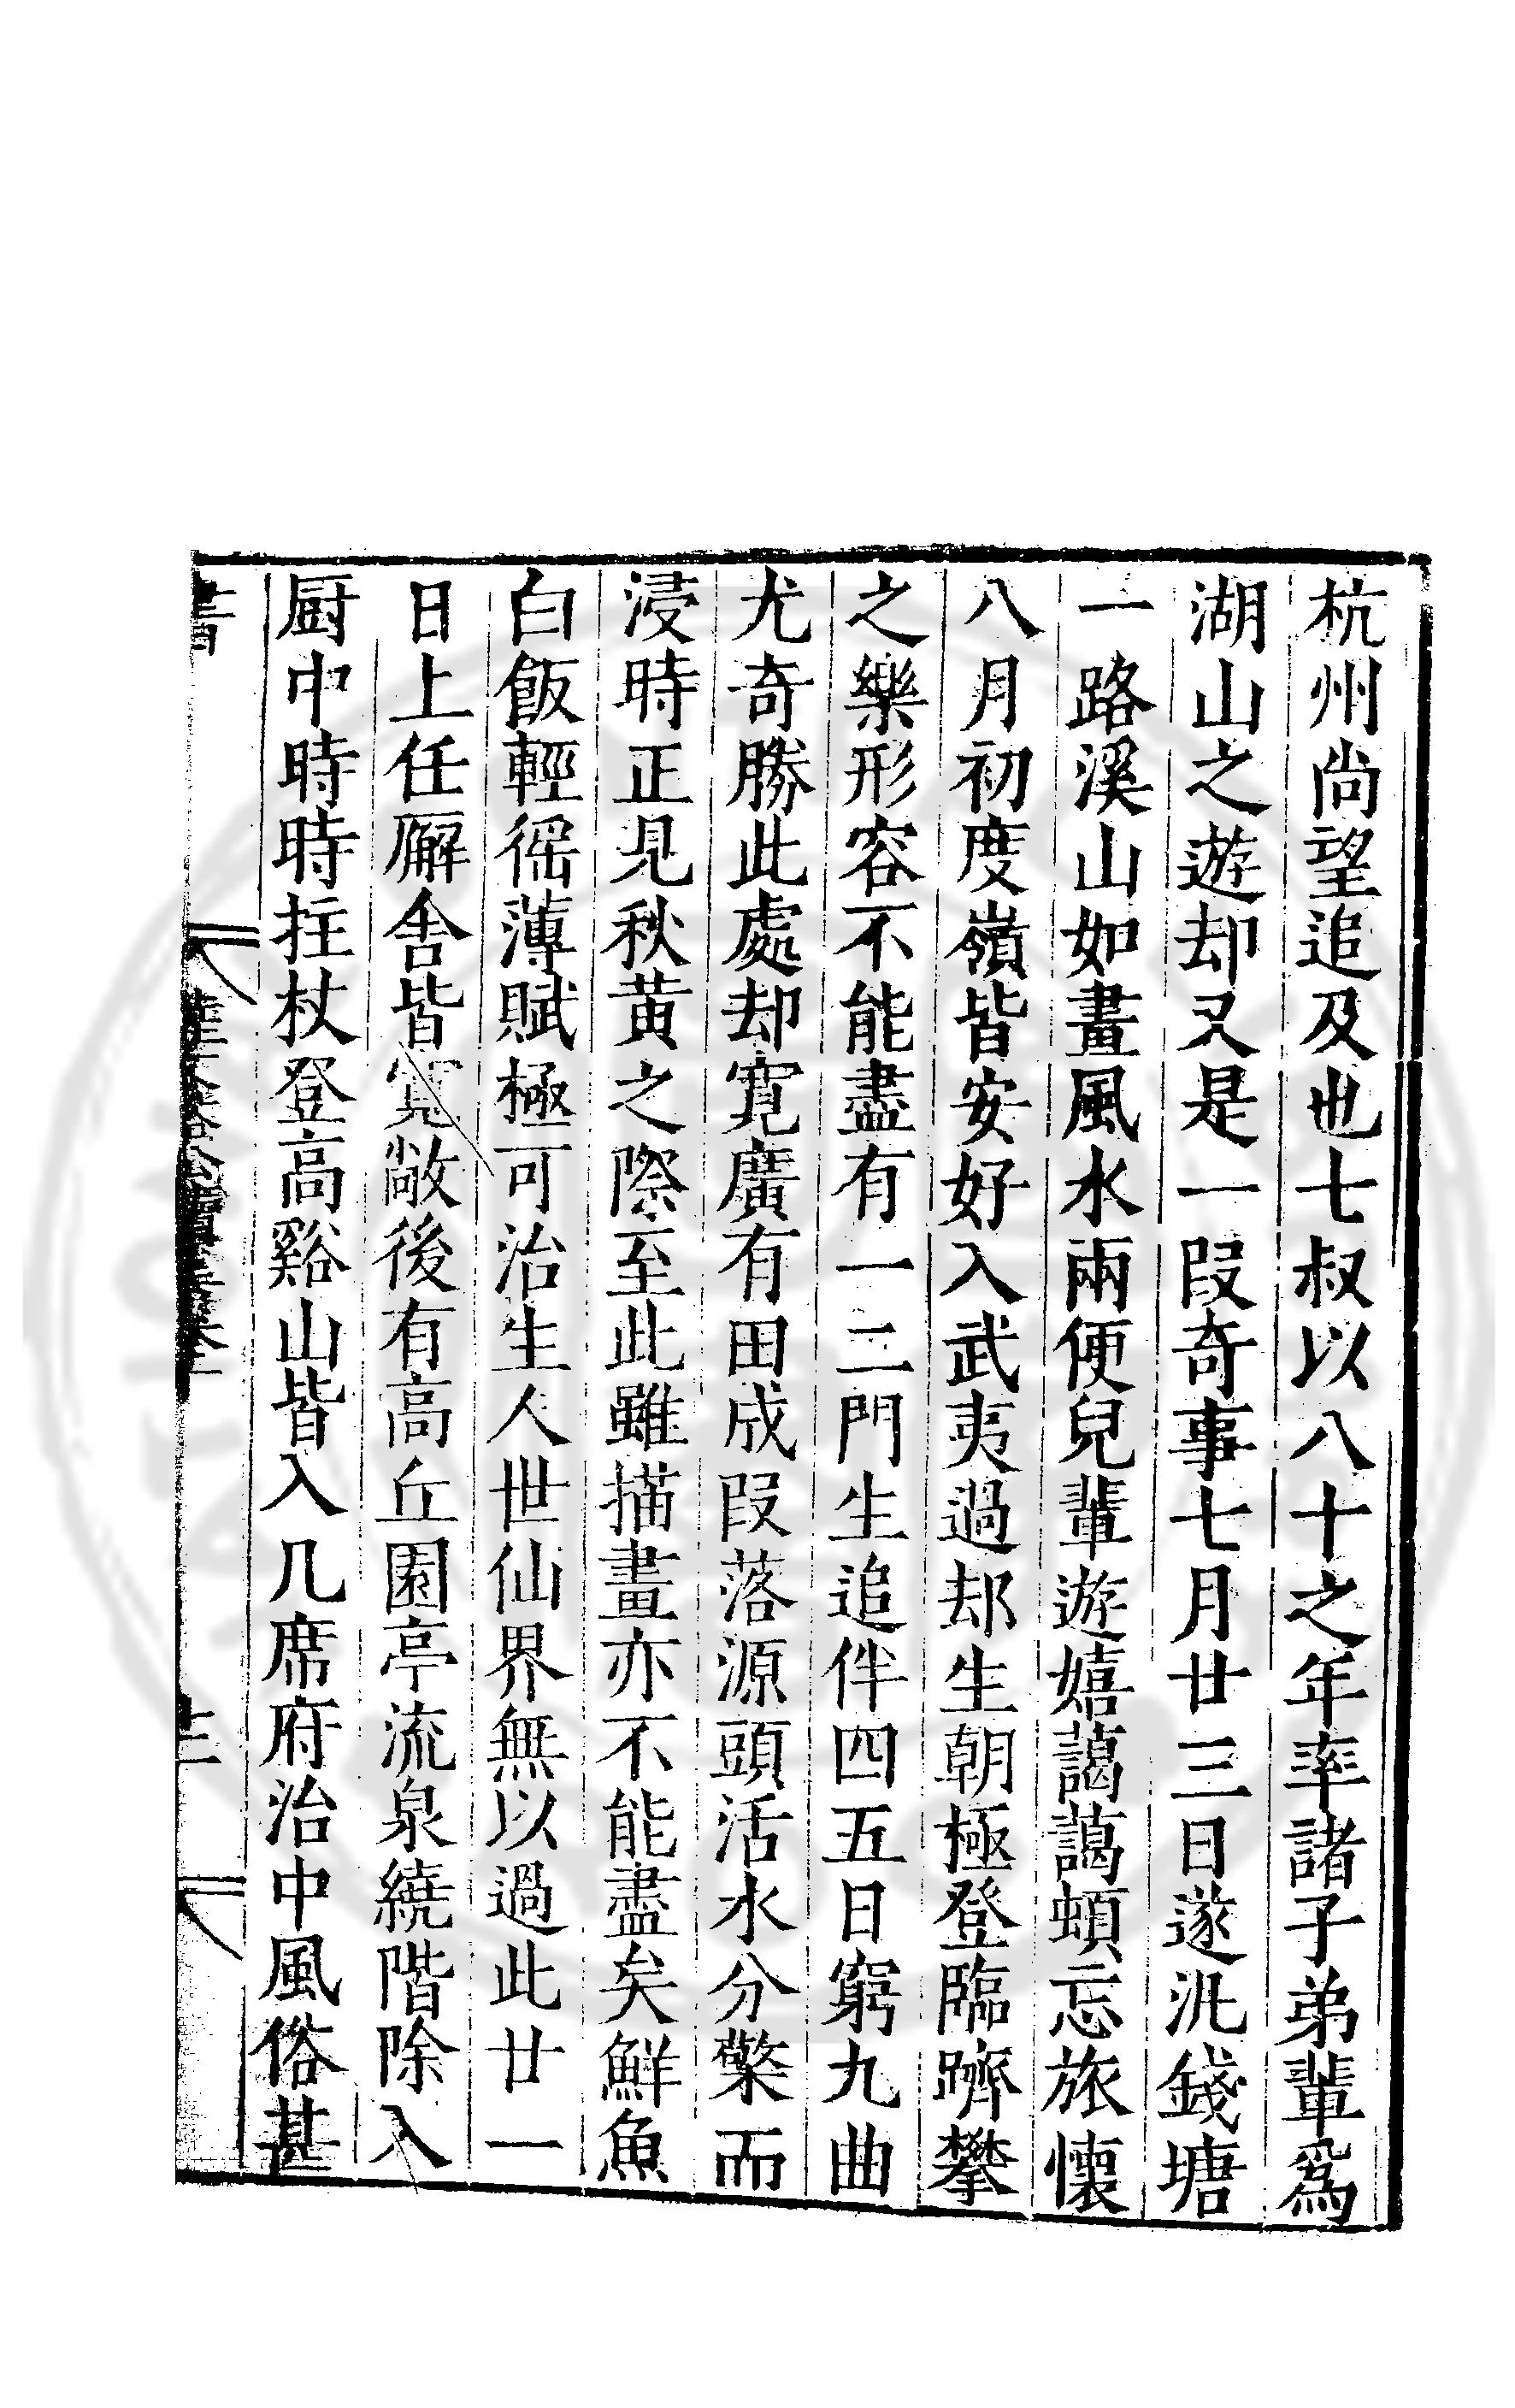 杭州尚望追及也七叔以八十之年率諸子弟輩爲
湖山之遊却又是一段奇事七月廿三日遂㳂錢塘
一路溪山如畫風水兩便兒輩遊嬉藹藹頓忘旅懷
八月初度嶺皆安好入武夷過却生朝極登臨躋攀
之樂形容不能盡有一二門生追伴四五日窮九曲
尤奇勝此處却寛廣有田成段落源頭活水分檠而
浸時正見秋黄之際至此雖描畫亦不能盡矣鮮魚
白飯輕徭薄賦極可治生人世仙界無以過此廿一
日上任廨舍皆寛敞後有高丘園亭流泉繞階除入
厨中時時拄杖登高谿山皆入几席府治中風俗甚
書